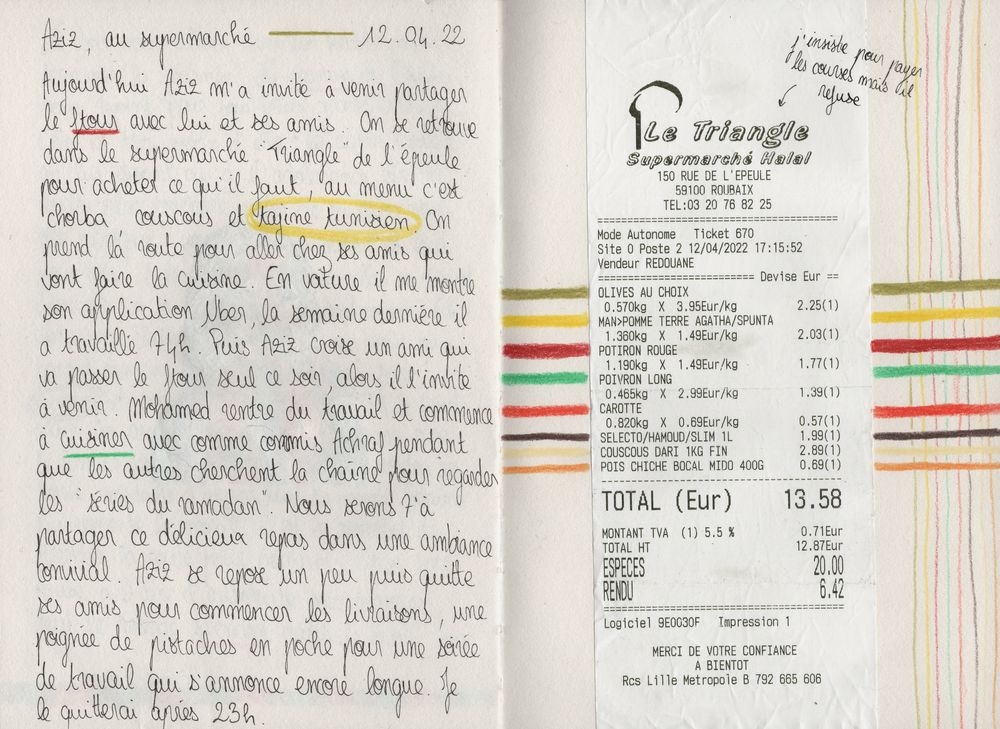 Aziz, au supermarché 12.04.22
Aujourd'hui Aziz m'a invité à venir partager
le ftour avec lui et ses amis. On se retrouve
dans le supermarché "Triangle" de l'épeule
pour acheter ce qu'il faut, au menu c'est
chorba couscous et tajine tunisien. On
prend la route pour aller chez ses amis qui
vont faire la cuisine. En voiture il me montre
son application Uber, la semaine dernière il
a travaillé 74h. Puis Aziz croise un ami qui
va passer le ftour seul ce soir, alors il l'invite
à venir. Mohamed rentre du travail et commence
à cuisiner avec comme commis Achraf pendant
que les autres cherchent la chaîne pour regarder
les "séries du ramadan". Nous serons 7 à
partager ce délicieux repas dans une ambiance
convivial. Aziz se repose un peu puis quitte
ses amis pour commencer les livraisons, une
poignée de pistaches en poche pour une soirée
de travail qui s'annonce encore longue. Je
le quitterai après 23h.
j'insiste pour payer
les courses mais il
refuse
Le Triangle
Supermarché Halal
150 RUE DE L'EPEULE
59100 ROUBAIX
TEL:03 20 76 82 25
Mode Autonome Ticket 670
Site 0 Poste 2 12/04/2022 17:15:52
Vendeur REDOUANE
Devise Eur
OLIVES AU CHOIX
0.570kg X 3.95Eur/kg 2.25(1)
MAN>POMME TERRE AGATHA/SPUNTA
1.360kg X 1.49Eur/kg 2.03(1)
POTIRON ROUGE
1.190kg X 1.49Eur/kg 1.77(1)
POIVRON LONG
0.465kg X 2.99Eur/kg 1.39(1)
CAROTTE
0.820kg X 0.69Eur/kg 0.57(1)
SELECTO/HAMOUD/SLIM 1L 1.99(1)
COUSCOUS DARI 1KG FIN 2.89(1)
POIS CHICHE BOCAL MIDO 400G 0.69(1)
TOTAL (Eur) 13.58
MONTANT TVA (1) 5.5 % 0.71Eur
TOTAL HT 12.87Eur
ESPECES 20.00
RENDU 6.42
Logiciel 9E0030F Impression 1
MERCI DE VOTRE CONFIANCE
A BIENTOT
Rcs Lille Metropole B 792 665 606